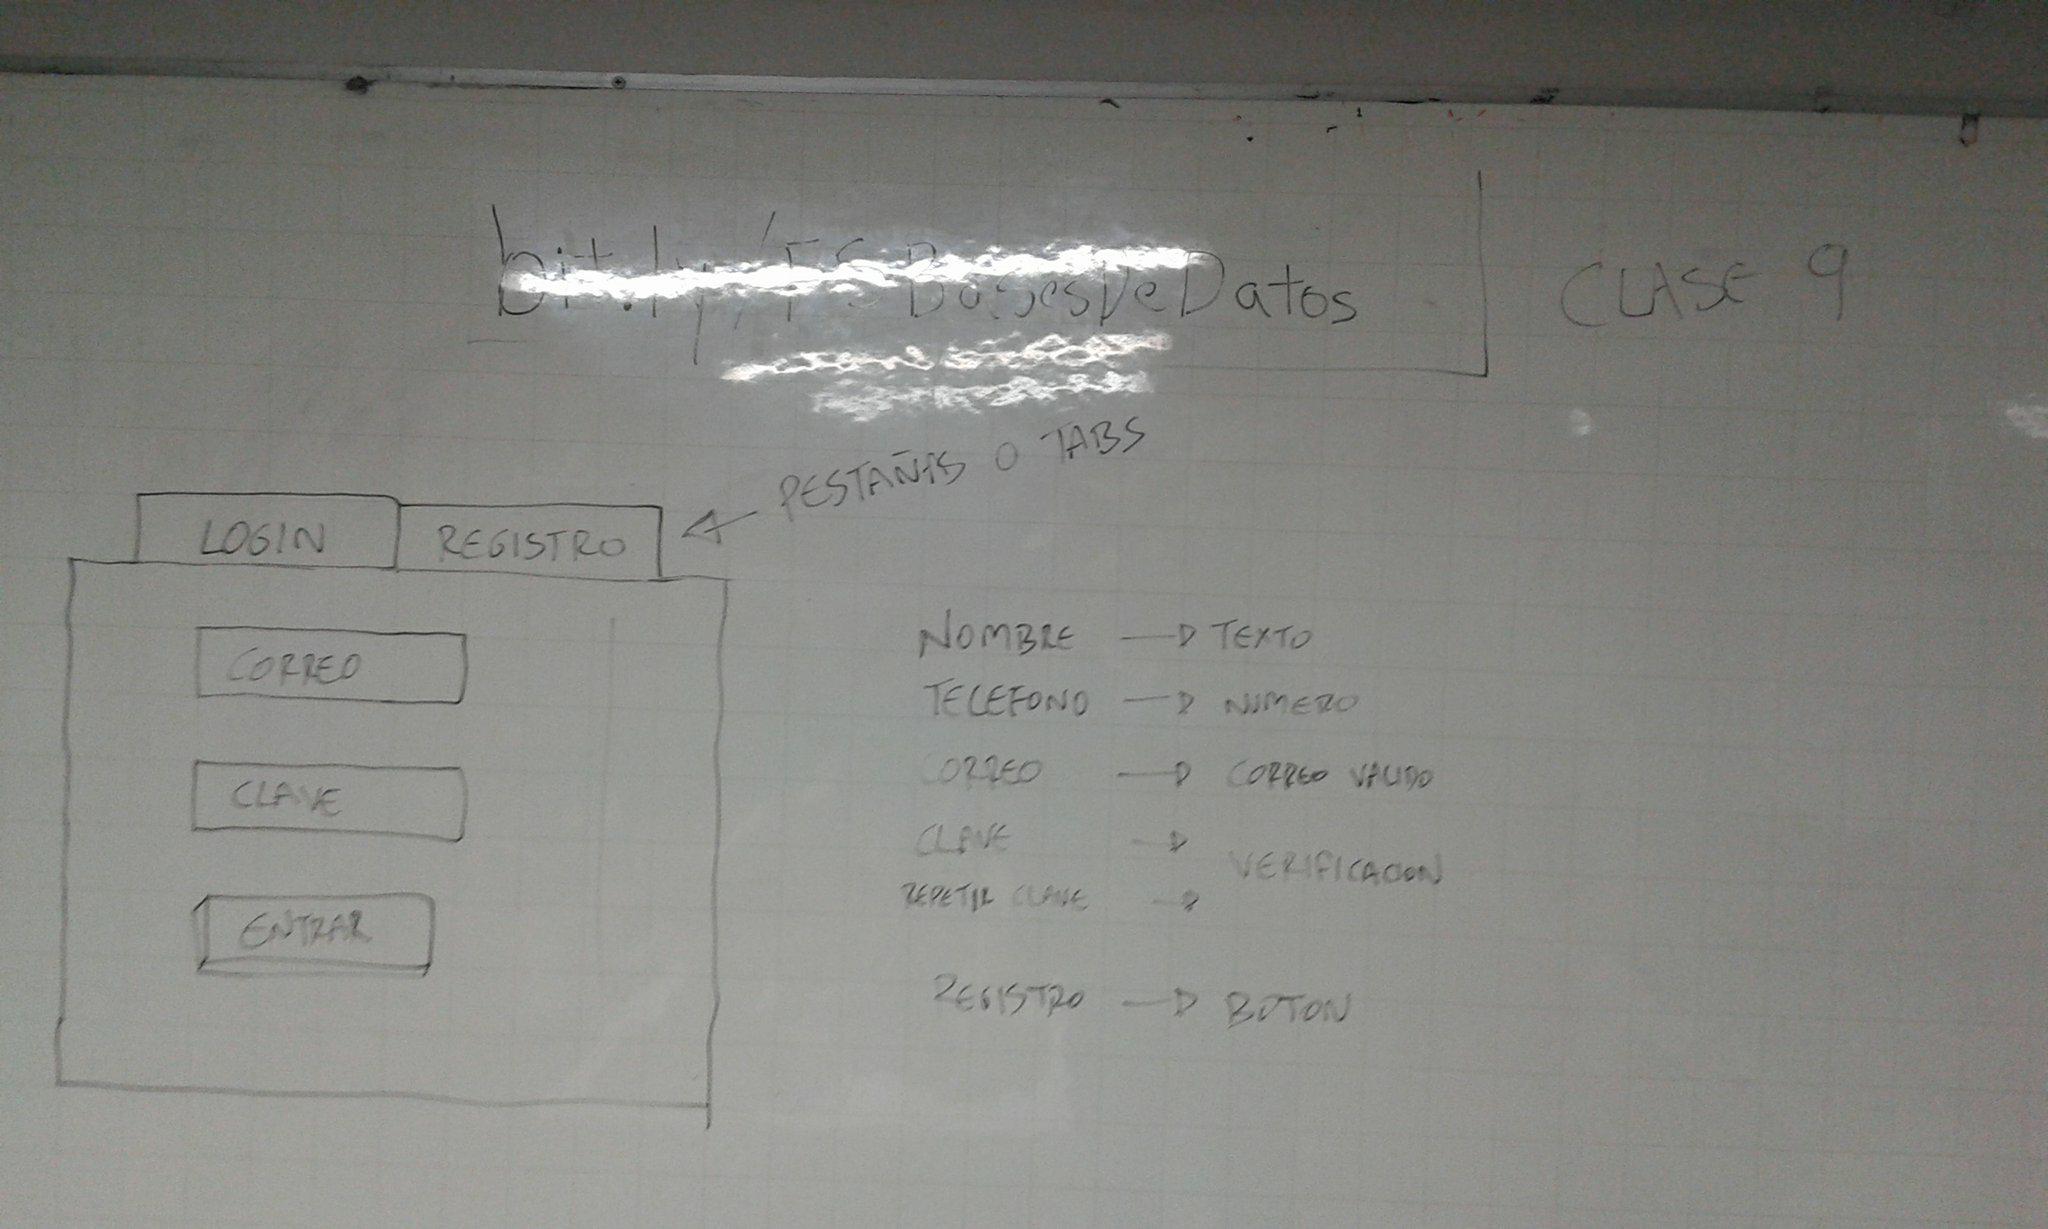 bit.ly/FSBasesDeDatos
CLASE 9
PESTAÑAS O TABS
LOGIN
REGISTRO
CORREO
CLAVE
ENTRAR
NOMBRE → TEXTO
TELEFONO → NUMERO
CORREO → CORREO VALIDO
CLAVE →
VERIFICACION
REPETIR CLAVE →
REGISTRO → BOTON